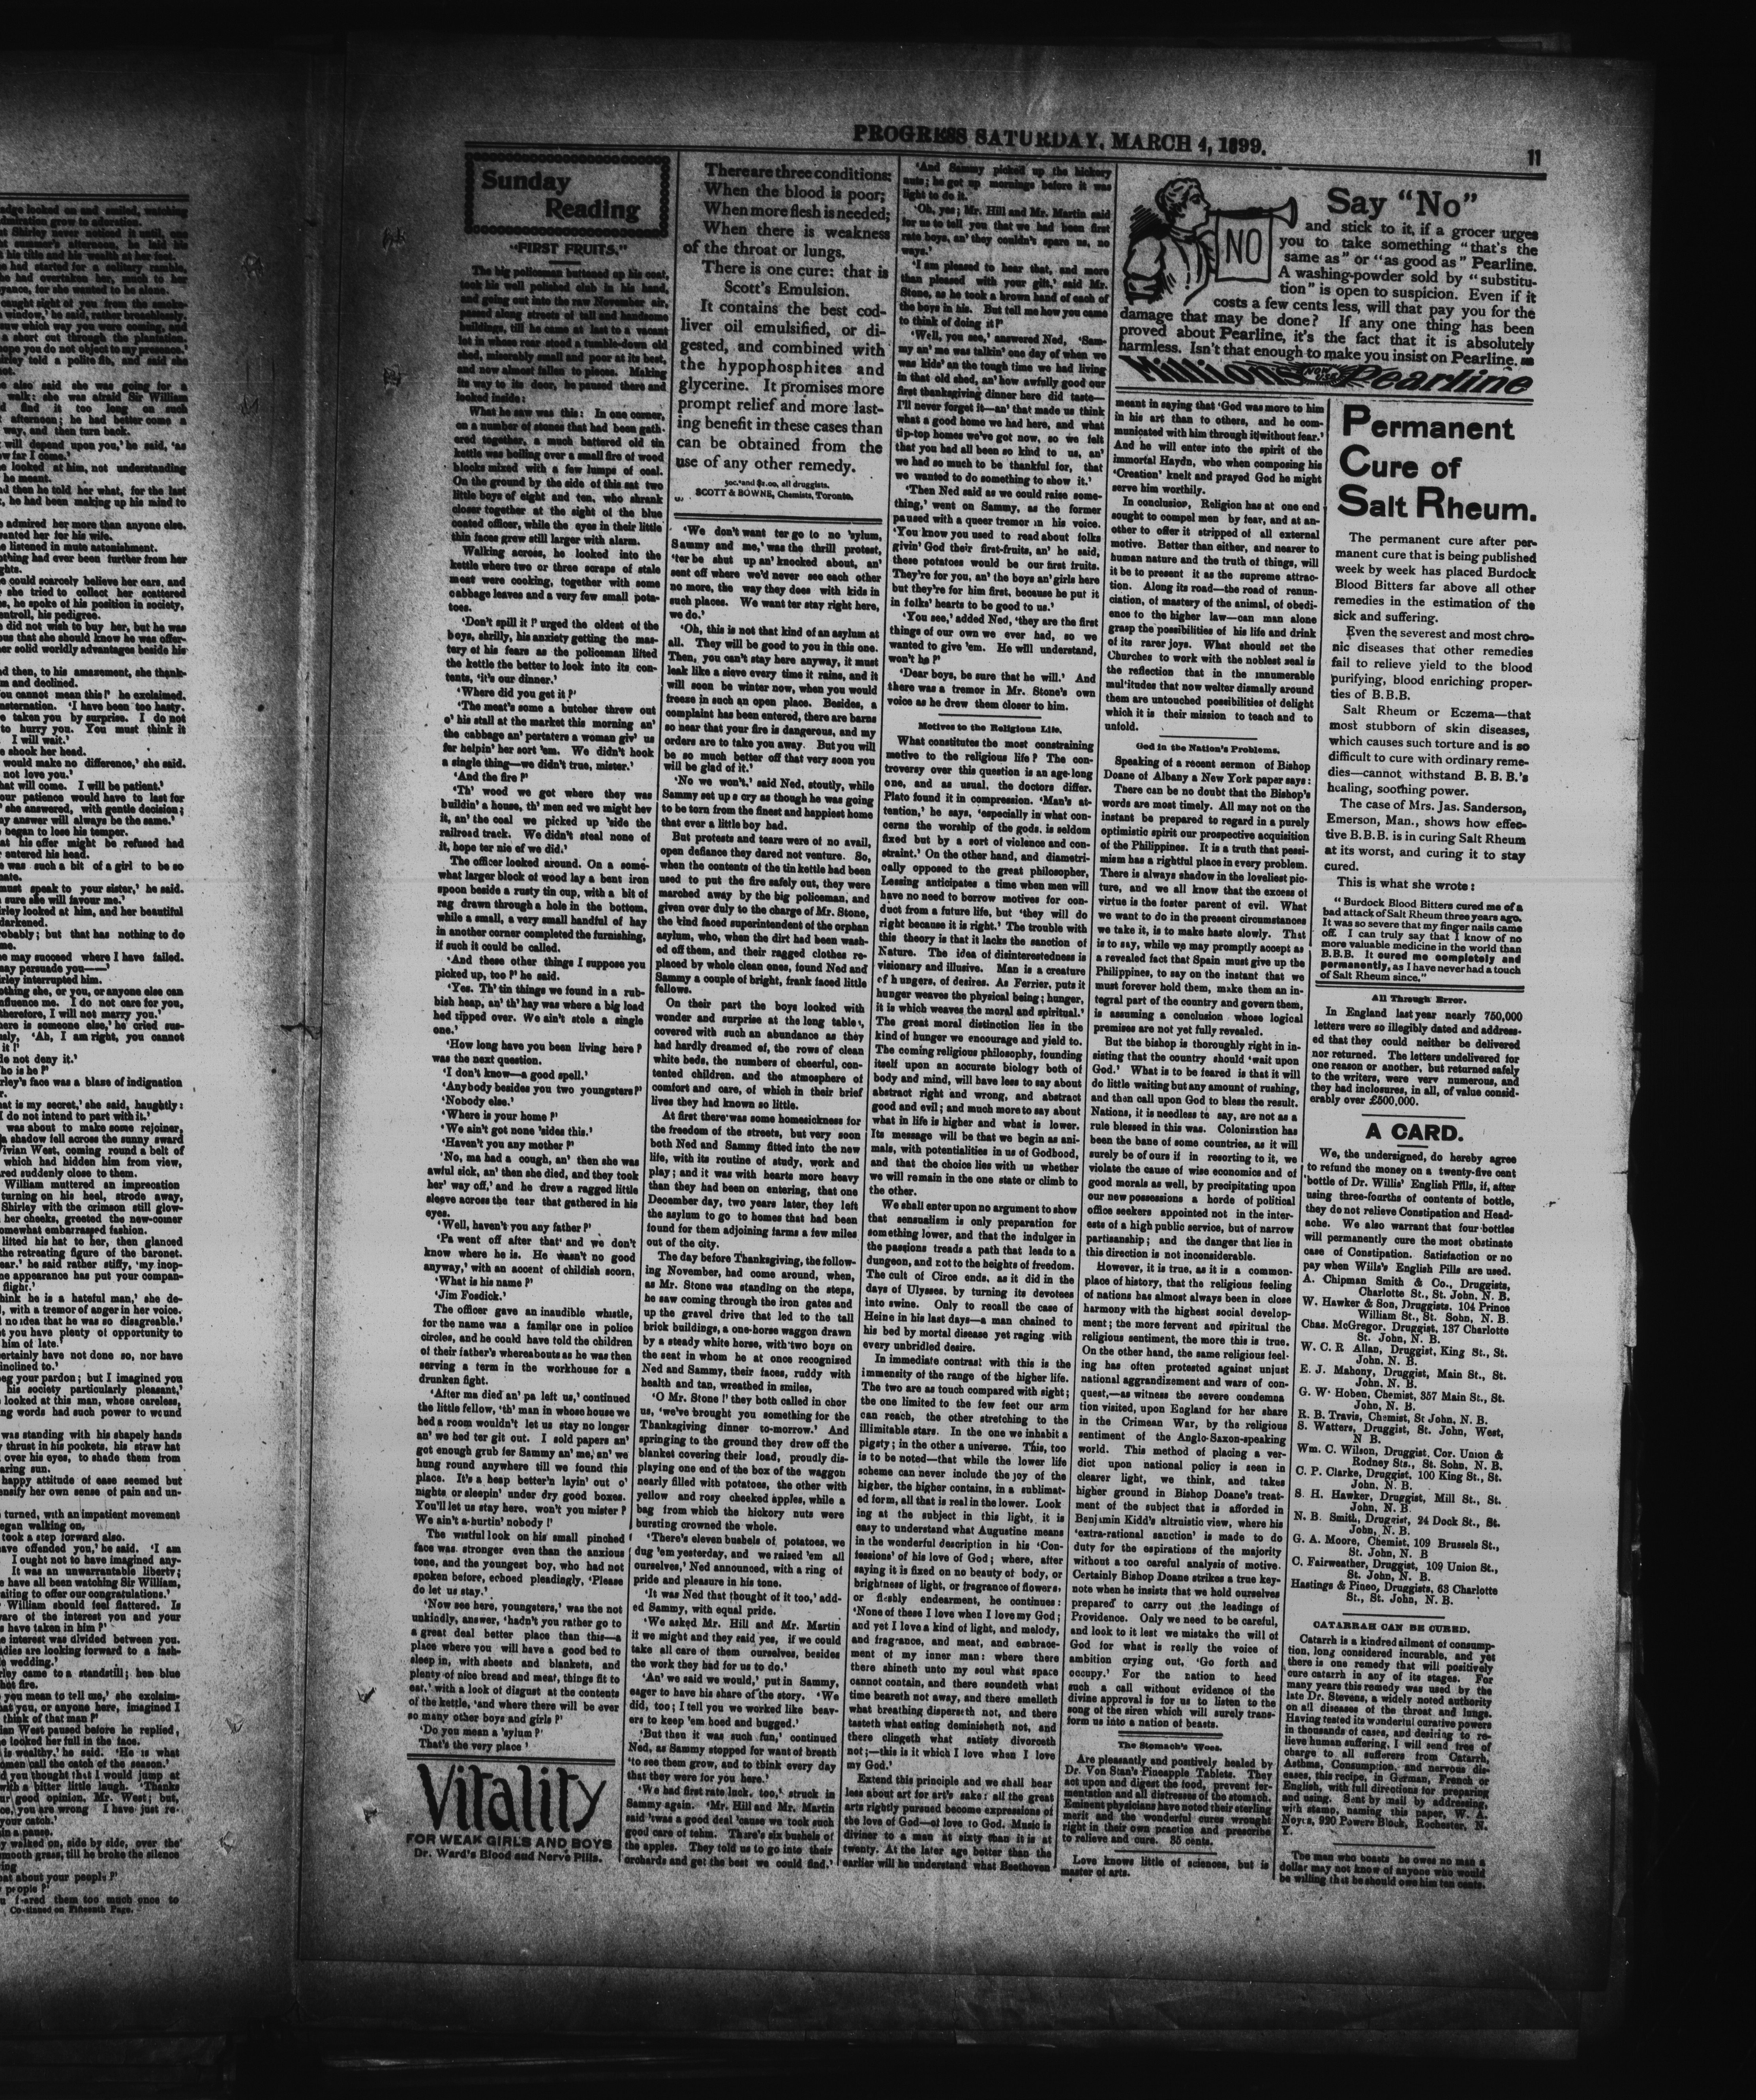 edge looked on and smiled, watching
admiration grow to adoration.
t Shirley never noticed it until, one
t summer's afternoon, he laid his
his title and his wealth at her feet.
e had started for a solitary ramble,
he had overtaken her, much to her
yance, for she wanted to be alone.
caught sight of you from the smoke-
window,' he said, rather breathlessly.
saw which way you were coming, and
a short cut through the plantation.
hope you do not object to my presence.'
irley told a polite fib, and said she
not.
e also said she was going for a
walk: she was afraid Sir William
d find it too long on such
afternoon; he had better come a
way, and then turn back.
will depend upon you,' he said, 'as
ow far I come.'
e looked at him, not understanding
he meant.
nd then he told her what, for the last
, he had been making up his mind to
admired her more than anyone else.
wanted her for his wife.
e listened in mute astonishment.
othing had ever been further from her
ghts.
e could scarcely believe her ears, and
she tried to collect her scattered
s, he spoke of his position in society,
entroll, his pedigree.
did not wish to buy her, but he was
ous that she should know he was offer-
er solid worldly advantages beside his
nd then, to his amazement, she thank-
m and declined.
ou cannot mean this!' he exclaimed.
nsternation. 'I have been too hasty.
taken you by surprise. I do not
to hurry you. You must think it
I will wait.'
e shook her head.
would make no difference,' she said.
not love you.'
hat will come. I will be patient.'
our patience would have to last for
she answered, with gentle decision;
y answer will always be the same.'
began to lose his temper.
at his offer might be refused had
entered his head.
was such a bit of a girl to be so
nate.
must speak to your sister,' he said.
sure she will favour me.'
irley looked at him, and her beautiful
darkened.
robably; but that has nothing to do
me.
he may succeed where I have failed.
may persuade you——'
irley interrupted him.
othing she, or you, or anyone else can
nfluence me. I do not care for you,
therefore, I will not marry you.'
here is someone else,' he cried sus-
sly. 'Ah, I am right, you cannot
it!'
do not deny it.'
ho is he?'
rley's face was a blaze of indignation
r.
hat is my secret,' she said, haughtly:
I do not intend to part with it.'
was about to make some rejoiner,
a shadow fell across the sunny sward
Vivian West, coming round a belt of
which had hidden him from view,
red suddenly close to them.
William muttered an imprecation
turning on his heel, strode away,
Shirley with the crimson still glow-
her cheeks, greeted the new-comer
omewhat embarrassed fashion.
lifted his hat to her, then glanced
the retreating figure of the baronet.
ear.' he said rather stiffy, 'my inop-
ne appearance has put your compan-
flight.'
hink he is a hateful man,' she de-
, with a tremor of anger in her voice.
no idea that he was so disagreable.'
t you have plenty of opportunity to
him of late.'
ertainly have not done so, nor have
inclined to.'
beg your pardon; but I imagined you
his society particularly pleasant,'
looked at this man, whose careless,
ng words had such power to wound
was standing with his shapely hands
thrust in his pockets, his straw hat
over his eyes, to shade them from
aring sun.
happy attitude of ease seemed but
ensify her own sense of pain and un-
turned, with an impatient movement
egan walking on,
took a step forward also.
ave offended you,' he said. 'I am
I ought not to have imagined any-
It was an unwarrantable liberty;
have all been watching Sir William,
aiting to offer our congratulations.'
William should feel flattered. Is
are of the interest you and your
s have taken in him?'
interest was divided between you.
dies are looking forward to a fash-
wedding.'
rley came to a standstill; her blue
hot fire.
you mean to tell me,' she exclaim-
at you, or anyone here, imagined I
think of that man?'
an West paused before he replied,
looked her full in the face.
is wealthy,' he said. 'He is what
omen call the catch of the season.'
d you thought that I would jump at
with a bitter little laugh. 'Thanks
ur good opinion, Mr. West; but,
ce, you are wrong I have just re-
your catch.'
in a pause.
y walked on, side by side, over the
mooth grass, till he broke the silence
ing
at about your people?'
people?'
u feared them too much once to
Continued on Fifteenth Page.
PROGRESS SATURDAY, MARCH 4, 1899.
11
Sunday
Reading
"FIRST FRUITS."
The big policeman buttoned up his coat,
took his well polished club in his hand,
and going out into the raw November air,
passed along streets of tall and handsome
buildings, till he came at last to a vacant
lot in whose rear stood a tumble-down old
shed, miserably small and poor at its best,
and now almost fallen to pieces. Making
its way to its door, he paused there and
looked inside:
What he saw was this: In one corner,
on a number of stones that had been gath-
ered together, a much battered old tin
kettle was boiling over a small fire of wood
blocks mixed with a few lumps of coal.
On the ground by the side of this sat two
little boys of eight and ten, who shrank
closer together at the sight of the blue
coated officer, while the eyes in their little
thin faces grew still larger with alarm.
Walking across, he looked into the
kettle where two or three scraps of stale
meat were cooking, together with some
cabbage leaves and a very few small pota-
toes.
'Don't spill it!' urged the oldest of the
boys, shrilly, his anxiety getting the mas-
tery of his fears as the policeman lifted
the kettle the better to look into its con-
tents, 'it's our dinner.'
'Where did you get it?'
'The meat's some a butcher threw out
o' his stall at the market this morning an'
the cabbage an' pertaters a woman giv' us
fer helpin' her sort 'em. We didn't hook
a single thing—we didn't true, mister.'
'And the fire?'
'Th' wood we got where they was
buildin' a house, th' men sed we might hev
it, an' the coal we picked up 'side the
railroad track. We didn't steal none of
it, hope ter nie of we did.'
The officer looked around. On a some-
what larger block of wood lay a bent iron
spoon beside a rusty tin cup, with a bit of
rag drawn through a hole in the bottom,
while a small, a very small handful of hay
in another corner completed the furnishing,
if such it could be called.
'And these other things I suppose you
picked up, too?' he said.
'Yes. Th' tin things we found in a rub-
bish heap, an' th' hay was where a big load
hed tipped over. We ain't stole a single
one.'
'How long have you been living here?'
was the next question.
'I don't know—a good spell.'
'Anybody besides you two youngsters?'
'Nobody else.'
'Where is your home?'
'We ain't got none 'sides this.'
'Haven't you any mother?'
'No, ma had a cough, an' then she was
awful sick, an' then she died, and they took
her' way off,' and he drew a ragged little
sleeve across the tear that gathered in his
eyes.
'Well, haven't you any father?'
'Pa went off after that' and we don't
know where he is. He wasn't no good
anyway,' with an accent of childish scorn.
'What is his name?'
'Jim Fosdick.'
The officer gave an inaudible whistle,
for the name was a familar one in police
circles, and he could have told the children
of their father's whereabouts as he was then
serving a term in the workhouse for a
drunken fight.
'After ma died an' pa left us,' continued
the little fellow, 'th' man in whose house we
hed a room wouldn't let us stay no longer
an' we hed ter git out. I sold papers an'
got enough grub fer Sammy an' me, an' we
hung round anywhere till we found this
place. It's a heap better'n layin' out o'
nights or sleepin' under dry good boxes.
You'll let us stay here, won't you mister?
We ain't a-hurtin' nobody!'
The wistful look on his small pinched
face was stronger even than the anxious
tone, and the youngest boy, who had not
spoken before, echoed pleadingly, 'Please
do let us stay.'
'Now see here, youngsters,' was the not
unkindly, answer, 'hadn't you rather go to
a great deal better place than this—a
place where you will have a good bed to
sleep in, with sheets and blankets, and
plenty of nice bread and meat, things fit to
eat,' with a look of disgust at the contents
of the kettle, 'and where there will be ever
so many other boys and girls?'
'Do you mean a 'sylum?'
That's the very place '
Vitality
FOR WEAK GIRLS AND BOYS
Dr. Ward's Blood and Nerve Pills.
There are three conditions:
When the blood is poor;
When more flesh is needed;
When there is weakness
of the throat or lungs.
There is one cure: that is
Scott's Emulsion.
It contains the best cod-
liver oil emulsified, or di-
gested, and combined with
the hypophosphites and
glycerine. It promises more
prompt relief and more last-
ing benefit in these cases than
can be obtained from the
use of any other remedy.
50c. and $1.00, all druggists.
SCOTT & BOWNE, Chemists, Toronto.
'We don't want ter go to no 'sylum,
Sammy and me,' was the thrill protest,
'ter be shut up an' knocked about, an'
sent off where we'd never see each other
no more, the way they does with kids in
such places. We want ter stay right here,
we do.'
'Oh, this is not that kind of an asylum at
all. They will be good to you in this one.
Then, you can't stay here anyway, it must
leak like a sieve every time it rains, and it
will soon be winter now, when you would
freeze in such an open place. Besides, a
complaint has been entered, there are barns
so near that your fire is dangerous, and my
orders are to take you away. But you will
be so much better off that very soon you
will be glad of it.'
'No we won't,' said Ned, stoutly, while
Sammy set up s cry as though he was going
to be torn from the finest and happiest home
that ever a little boy had.
But protests and tears were of no avail,
open defiance they dared not venture. So,
when the contents of the tin kettle had been
used to put the fire safely out, they were
marched away by the big policeman, and
given over duly to the charge of Mr. Stone,
the kind faced superintendent of the orphan
asylum, who, when the dirt had been wash-
ed off them, and their ragged clothes re-
placed by whole clean ones, found Ned and
Sammy a couple of bright, frank faced little
fellows.
On their part the boys looked with
wonder and surprise at the long tables,
covered with such an abundance as they
had hardly dreamed of, the rows of clean
white beds, the numbers of cheerful, con-
tented children. and the atmosphere of
comfort and care, of which in their brief
lives they had known so little.
At first there was some homesickness for
the freedom of the streets, but very soon
both Ned and Sammy fitted into the new
life, with its routine of study, work and
play; and it was with hearts more heavy
than they had been on entering, that one
December day, two years later, they left
the asylum to go to homes that had been
found for them adjoining farms a few miles
out of the city.
The day before Thanksgiving, the follow-
ing November, had come around, when,
as Mr. Stone was standing on the steps,
he saw coming through the iron gates and
up the gravel drive that led to the tall
brick buildings, a one-horse waggon drawn
by a steady white horse, with two boys on
the seat in whom he at once recognised
Ned and Sammy, their faces, ruddy with
health and tan, wreathed in smiles,
'O Mr. Stone!' they both called in chor
us, 'we've brought you something for the
Thanksgiving dinner to-morrow.' And
springing to the ground they drew off the
blanket covering their load, proudly dis-
playing one end of the box of the waggon
nearly filled with potatoes, the other with
yellow and rosy cheeked apples, while a
bag from which the hickory nuts were
bursting crowned the whole.
'There's eleven bushels of potatoes, we
dug 'em yesterday, and we raised 'em all
ourselves,' Ned announced, with a ring of
pride and pleasure in his tone.
'It was Ned that thought of it too,' add-
ed Sammy, with equal pride.
'We asked Mr. Hill and Mr. Martin
if we might and they said yes, if we could
take all care of them ourselves, besides
the work they had for us to do.'
'An' we said we would,' put in Sammy,
eager to have his share of the story. 'We
did, too; I tell you we worked like beav-
ers to keep 'em hoed and bugged.'
'But then it was such fun,' continued
Ned, as Sammy stopped for want of breath
'to see them grow, and to think every day
that they were for you here.'
'We had first rate luck, too,' struck in
Sammy again. 'Mr. Hill and Mr. Martin
said 'twas a good deal 'cause we took such
good care of tehm. There's six bushels of
the apples. They told us to go into their
orchards and get the best we could find.'
'And Sammy picked up the hickory
nuts; he got up mornings before it was
light to do it.
'Oh, yes; Mr. Hill and Mr. Martin said
for us to tell you that we had been first
rate boys, an' they couldn't spare us, no
ways.'
'I am pleased to hear that, and more
than pleased with your gift,' said Mr.
Stone, as he took a brown hand of each of
the boys in his. But tell me how you came
to think of doing it?'
'Well, you see,' answered Ned, 'Sam-
my an' me was talkin' one day of when we
was kids' an the tough time we had living
in that old shed, an' how awfully good our
first thanksgiving dinner here did taste—
I'll never forget it—an' that made us think
what a good home we had here, and what
tip-top homes we've got now, so we felt
that you had all been so kind to us, an'
we had so much to be thankful for, that
we wanted to do something to show it.'
'Then Ned said as we could raise some-
thing,' went on Sammy, as the former
paused with a queer tremor in his voice.
'You know you used to read about folks
givin' God their first-fruits, an' he said,
these potatoes would be our first fruits.
They're for you, an' the boys an' girls here
but they're for him first, because he put it
in folks' hearts to be good to us.'
'You see,' added Ned, 'they are the first
things of our own we ever had, so we
wanted to give 'em. He will understand,
won't he?'
'Dear boys, be sure that he will.' And
there was a tremor in Mr. Stone's own
voice as he drew them closer to him.
Motives to the Religious Life.
What constitutes the most constraining
motive to the religious life? The con-
troversy over this question is an age-long
one, and as usual, the doctors differ.
Plato found it in compression. 'Man's at-
tention,' he says, 'especially in what con-
cerns the worship of the gods. is seldom
fixed but by a sort of violence and con-
straint.' On the other hand, and diametri-
cally opposed to the great philosopher,
Lessing anticipates a time when men will
have no need to borrow motives for con-
duct from a future life, but 'they will do
right because it is right.' The trouble with
this theory is that it lacks the sanction of
Nature. The idea of disinterestedness is
visionary and illusive. Man is a creature
of hungers, of desires. As Ferrier, puts it
hunger weaves the physical being; hunger,
it is which weaves the moral and spiritual.'
The great moral distinction lies in the
kind of hunger we encourage and yield to.
The coming religious philosophy, founding
itself upon an accurate biology both of
body and mind, will have less to say about
abstract right and wrong, and abstract
good and evil; and much more to say about
what in life is higher and what is lower.
Its message will be that we begin as ani-
mals, with potentialities in us of Godhood,
and that the choice lies with us whether
we will remain in the one state or climb to
the other.
We shall enter upon no argument to show
that sensualism is only preparation for
something lower, and that the indulger in
the passions treads a path that leads to a
dungeon, and not to the heights of freedom.
The cult of Circe ends, as it did in the
days of Ulysses, by turning its devotees
into swine. Only to recall the case of
Heine in his last days—a man chained to
his bed by mortal disease yet raging with
every unbridled desire.
In immediate contrast with this is the
immensity of the range of the higher life.
The two are as touch compared with sight;
the one limited to the few feet our arm
can reach, the other stretching to the
illimitable stars. In the one we inhabit a
pigsty; in the other a universe. This, too
is to be noted—that while the lower life
scheme can never include the joy of the
higher, the higher contains, in a sublimat-
ed form, all that is real in the lower. Look
ing at the subject in this light, it is
easy to understand what Augustine means
in the wonderful description in his 'Con-
fessions' of his love of God; where, after
saying it is fixed on no beauty of body, or
brightness of light, or fragrance of flowers,
or fleshly endearment, he continues:
'None of these I love when I love my God;
and yet I love a kind of light, and melody,
and fragrance, and meat, and embrace-
ment of my inner man: where there
there shineth unto my soul what space
cannot contain, and there soundeth what
time beareth not away, and there smelleth
what breathing disperseth not, and there
tasteth what eating deminisheth not, and
there clingeth what satiety divorceth
not;—this is it which I love when I love
my God.'
Extend this principle and we shall hear
less about art for art's sake: all the great
arts rightly pursued become expressions of
the love of God—of love to God. Music is
diviner to a man at sixty than it is at
twenty. At the later age better than the
earlier will he understand what Beethoven
Say "No"
and stick to it, if a grocer urges
you to take something "that's the
same as" or "as good as" Pearline.
A washing-powder sold by "substitu-
tion" is open to suspicion. Even if it
costs a few cents less, will that pay you for the
damage that may be done? If any one thing has been
proved about Pearline, it's the fact that it is absolutely
harmless. Isn't that enough to make you insist on Pearline.
NO
Millions NOW USE Pearline
meant in saying that 'God was more to him
in his art than to others, and he com-
municated with him through it without fear.'
And he will enter into the spirit of the
immortal Haydn, who when composing his
'Creation' knelt and prayed God he might
serve him worthily.
In conclusion, Religion has at one end
sought to compel men by fear, and at an-
other to offer it stripped of all external
motive. Better than either, and nearer to
human nature and the truth of things, will
it be to present it as the supreme attrac-
tion. Along its road—the road of renun-
ciation, of mastery of the animal, of obedi-
ence to the higher law—can man alone
grasp the possibilities of his life and drink
of its rarer joys. What should set the
Churches to work with the noblest zeal is
the reflection that in the innumerable
mul'itudes that now welter dismally around
them are untouched possibilities of delight
which it is their mission to teach and to
unfold.
God in the Nation's Problems.
Speaking of a recent sermon of Bishop
Doane of Albany a New York paper says:
There can be no doubt that the Bishop's
words are most timely. All may not on the
instant be prepared to regard in a purely
optimistic spirit our prospective acquisition
of the Philippines. It is a truth that pessi-
mism has a rightful place in every problem.
There is always shadow in the loveliest pic-
ture, and we all know that the excess of
virtue is the foster parent of evil. What
we want to do in the present circumstances
we take it, is to make haste slowly. That
is to say, while we may promptly accept as
a revealed fact that Spain must give up the
Philippines, to say on the instant that we
must forever hold them, make them an in-
tegral part of the country and govern them,
is assuming a conclusion whose logical
premises are not yet fully revealed.
But the bishop is thoroughly right in in-
sisting that the country should 'wait upon
God.' What is to be feared is that it will
do little waiting but any amount of rushing,
and then call upon God to bless the result.
Nations, it is needless to say, are not as a
rule blessed in this was. Colonization has
been the bane of some countries, as it will
surely be of ours if in resorting to it, we
violate the cause of wise economics and of
good morals as well, by precipitating upon
our new possessions a horde of political
office seekers appointed not in the inter-
ests of a high public service, but of narrow
partisanship; and the danger that lies in
this direction is not inconsiderable.
However, it is true, as it is a common-
place of history, that the religious feeling
of nations has almost always been in close
harmony with the highest social develop-
ment; the more fervent and spiritual the
religious sentiment, the more this is true.
On the other hand, the same religious feel-
ing has often protested against unjust
national aggrandizement and wars of con-
quest,—as witness the severe condemna
tion visited, upon England for her share
in the Crimean War, by the religious
sentiment of the Anglo-Saxon-speaking
world. This method of placing a ver-
dict upon national policy is seen in
clearer light, we think, and takes
higher ground in Bishop Doane's treat-
ment of the subject that is afforded in
Benjamin Kidd's altruistic view, where his
'extra-rational sanction' is made to do
duty for the espirations of the majority
without a too careful analysis of motive.
Certainly Bishop Doane strikes a true key-
note when he insists that we hold ourselves
prepared to carry out the leadings of
Providence. Only we need to be careful,
and look to it lest we mistake the will of
God for what is really the voice of
ambition crying out, 'Go forth and
occupy.' For the nation to heed
such a call without evidence of the
divine approval is for us to listen to the
song of the siren which will surely trans-
form us into a nation of beasts.
The Stomach's Woes.
Are pleasantly and positively healed by
Dr. Von Stan's Pineapple Tablets. They
act upon and digest the food, prevent fer-
mentation and all distresses of the stomach.
Eminent physicians have noted their sterling
merit and the wonderful cures wrought
right in their own practice and prescribe
to relieve and cure. 35 cents.
Love knows little of sciences, but is
master of arts.
Permanent
Cure of
Salt Rheum.
The permanent cure after per-
manent cure that is being published
week by week has placed Burdock
Blood Bitters far above all other
remedies in the estimation of the
sick and suffering.
Even the severest and most chro-
nic diseases that other remedies
fail to relieve yield to the blood
purifying, blood enriching proper-
ties of B.B.B.
Salt Rheum or Eczema—that
most stubborn of skin diseases,
which causes such torture and is so
difficult to cure with ordinary reme-
dies—cannot withstand B. B. B.'s
healing, soothing power.
The case of Mrs. Jas. Sanderson,
Emerson, Man., shows how effec-
tive B.B.B. is in curing Salt Rheum
at its worst, and curing it to stay
cured.
This is what she wrote:
"Burdock Blood Bitters cured me of a
bad attack of Salt Rheum three years ago.
It was so severe that my finger nails came
off. I can truly say that I know of no
more valuable medicine in the world than
B.B.B. It cured me completely and
permanently, as I have never had a touch
of Salt Rheum since."
All Through Error.
In England last year nearly 750,000
letters were so illegibly dated and address-
ed that they could neither be delivered
nor returned. The letters undelivered for
one reason or another, but returned safely
to the writers, were very numerous, and
they had inclosures, in all, of value consid-
erably over £500,000.
A CARD.
We, the undersigned, do hereby agree
to refund the money on a twenty-five cent
bottle of Dr. Willis' English Pills, if, after
using three-fourths of contents of bottle,
they do not relieve Constipation and Head-
ache. We also warrant that four bottles
will permanently cure the most obstinate
case of Constipation. Satisfaction or no
pay when Wills's English Pills are used.
A. Chipman Smith & Co., Druggists,
Charlotte St., St. John, N. B.
W. Hawker & Son, Druggists. 104 Prince
William St., St. Sohn, N. B.
Chas. McGregor, Druggist, 137 Charlotte
St. John, N. B.
W. C. R Allan, Druggist, King St., St.
John, N. B.
E. J. Mahony, Druggist, Main St., St.
John, N. B.
G. W' Hoben, Chemist, 357 Main St., St.
John, N. B.
R. B. Travis, Chemist, St John, N. B.
S. Watters, Druggist, St. John, West,
N B.
Wm. C. Wilson, Druggist, Cor. Union &
Rodney Sts., St. Sohn, N. B.
C. P. Clarke, Druggist, 100 King St., St.
John, N. B.
S. H. Hawker, Druggist, Mill St., St.
John, N. B.
N. B. Smith, Druggist, 24 Dock St., St.
John, N. B.
G. A. Moore, Chemist, 109 Brussels St.,
St. John, N. B
C. Fairweather, Druggist, 109 Union St.,
St. John, N. B.
Hastings & Pineo, Druggists, 63 Charlotte
St., St. John, N. B.
CATARRAH CAN BE CURED.
Catarrh is a kindred ailment of consump-
tion, long considered incurable, and yet
there is one remedy that will positively
cure catarrh in any of its stages. For
many years this remedy was used by the
late Dr. Stevens, a widely noted authority
on all diseases of the throat and lungs.
Having tested its wonderful curative powers
in thousands of cases, and desiring to re-
lieve human suffering, I will send free of
charge to all sufferers from Catarrh,
Asthma, Consumption, and nervous dis-
eases, this recipe, in German, French or
English, with full directions for preparing
and using. Sent by mail by addressing,
with stamp, naming this paper, W. A.
Noyes, 920 Powers Block, Rochester, N.
Y.
The man who boasts he owes no man a
dollar may not know of anyone who would
be willing that he should owe him ten cents.